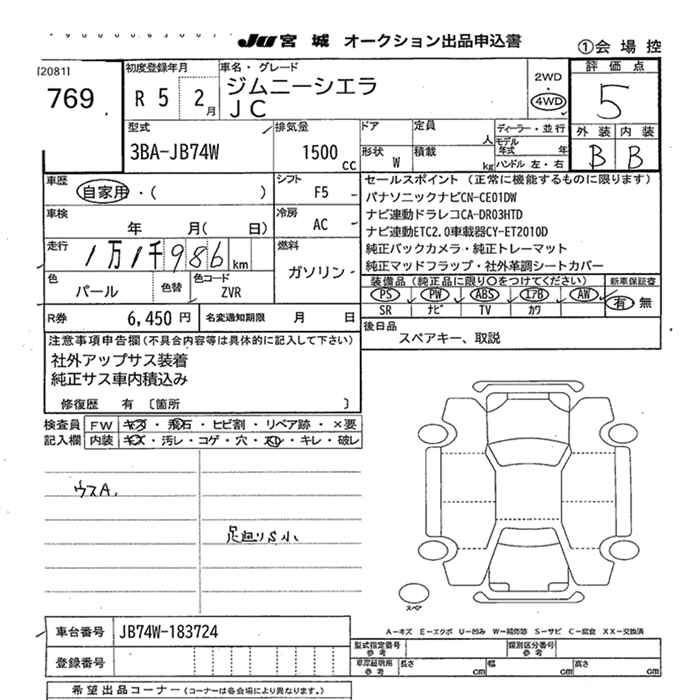 Ju 宮 城 オークション出品申込書
①会 場 控
[20811]
769
初度登録年月
R 5 2 月
車名・グレード
ジムニーシエラ
JC
2WD
・
4WD
評 価 点
5
外 装 内 装
B B
型式
3BA-JB74W
排気量
1500 cc
ドア 定員 人
形状 W 積載 kg
ディーラー・並行
モデル年式 年
ハンドル 左・右
車歴
自家用・( )
シフト
F5
車検
年 月( 日)
冷房
AC
走行
1万1千986 km
燃料
ガソリン
色
パール
色替
色コード
ZVR
セールスポイント (正常に機能するものに限ります)
パナソニックナビCN-CE01DW
ナビ連動ドラレコCA-DR03HTD
ナビ連動ETC2.0車載器CY-ET2010D
純正バックカメラ・純正トレーマット
純正マッドフラップ・社外革調シートカバー
装備品 (純正品に限り○をつけてください)
新車保証書
PS PW ABS エアB AW
有 無
SR ナビ TV カワ
R券 6,450 円
名変通知期限 月 日
後日品
スペアキー、取説
注意事項申告欄(不具合内容等は具体的に記入して下さい)
社外アップサス装着
純正サス車内積込み
修復歴 有 〔箇所 〕
検査員
記入欄
FW キズ・飛石・ヒビ割・リペア跡・×要
内装 キズ・汚レ・コゲ・穴・スレ・キレ・破レ
ウスA.
足廻りS小
スペア
A-キズ E-エクボ U-凹み W-補修跡 S-サビ C-腐食 XX-交換済
車台番号 JB74W-183724
登録番号
型式指定番号 参考
類別区分番号 参考
車庫証明用 参考
長さ cm 幅 cm 高さ cm
希望出品コーナー (コーナーは各会場により異なります。)